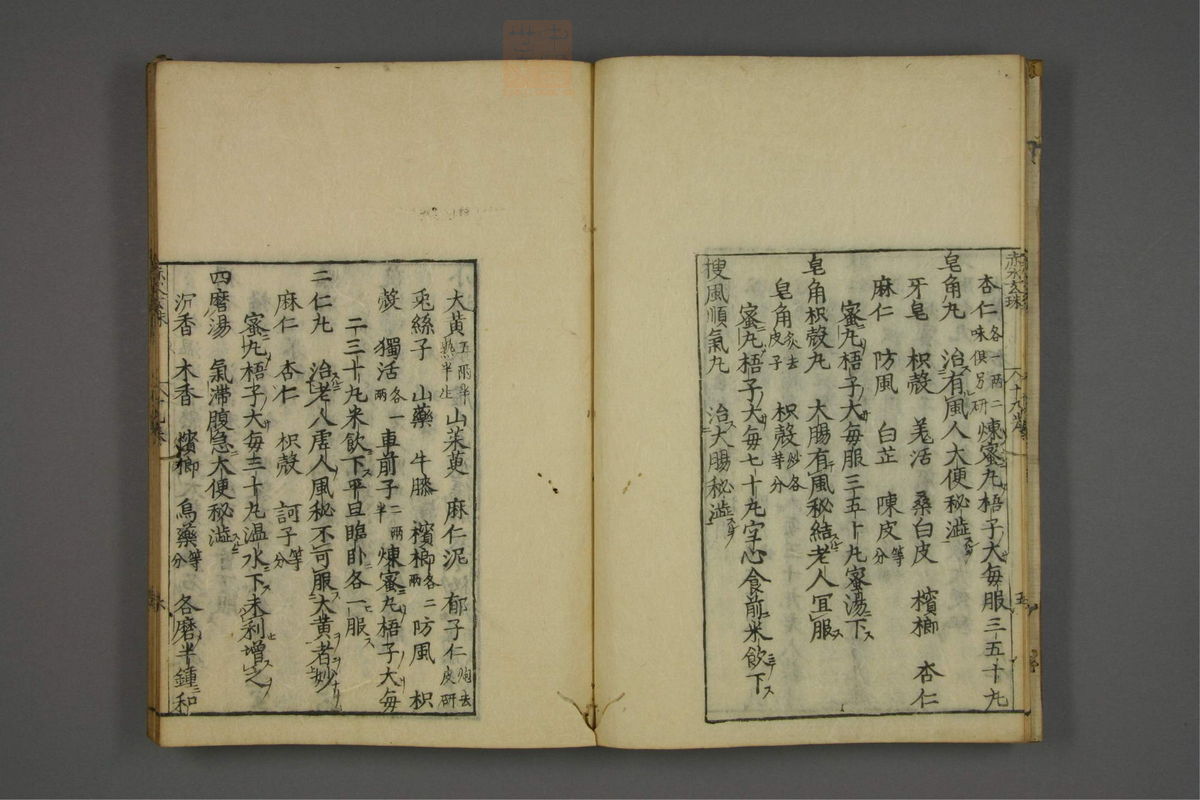 杏仁各一兩二味俱另研煉蜜丸梧子大每服三五十丸
皂角丸　治有風人大便秘澁
牙皂　枳殼　羌活　桑白皮　檳榔　杏仁
麻仁　防風　白芷　陳皮等分
蜜丸梧子大每服三五十丸蜜湯下
皂角枳殼丸　大腸有風秘結老人宜服
皂角炙去皮子　枳殼炒各等分
蜜丸梧子大每七十丸空心食前米飲下
搜風順氣丸　治大腸秘澁
大黃五兩半熟半生　山茱萸　麻仁泥　郁子仁炮去皮研
兎絲子　山藥　牛膝　檳榔各二兩　防風　枳
殼　獨活各一兩　車前子二兩半　煉蜜丸梧子大每
二三十丸米飲下平旦臨卧各一服
二仁丸　治老人虛人風秘不可服大黃者妙
麻仁　杏仁　枳殼　訶子等分
蜜丸梧子大每三十丸温水下未利增之
四磨湯　氣滯腹急大便秘澁
沉香　木香　檳榔　烏藥等分　各磨半鍾和